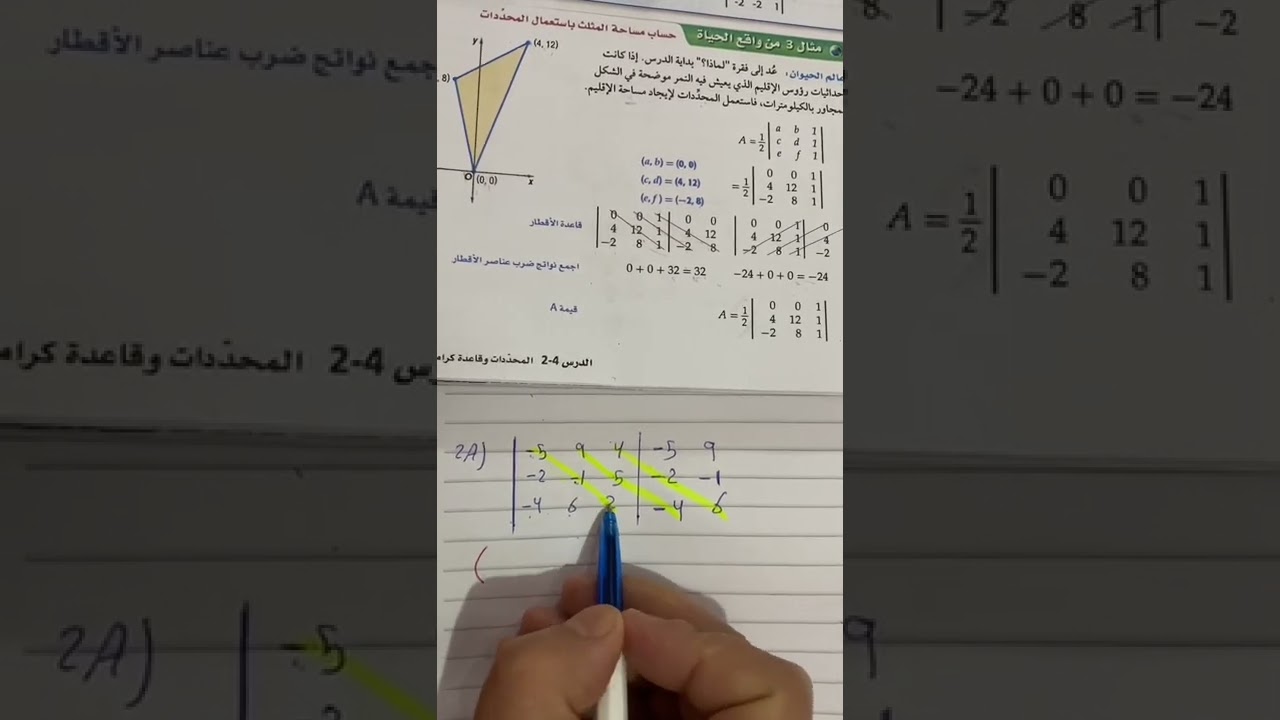 -2 -2 1
مثال 3 من واقع الحياة حساب مساحة المثلث باستعمال المحدّدات
عالم الحيوان: عُد إلى فقرة "لماذا؟" بداية الدرس. إذا كانت
إحداثيات رؤوس الإقليم الذي يعيش فيه النمر موضحة في الشكل
المجاور بالكيلومترات، فاستعمل المحدِّدات لإيجاد مساحة الإقليم.
y
(4, 12)
, 8)
O (0, 0) x
A = 1/2 | a b 1 |
| c d 1 |
| e f 1 |
(a, b) = (0, 0)
(c, d) = (4, 12)
(e, f) = (-2, 8)
= 1/2 | 0 0 1 |
| 4 12 1 |
| -2 8 1 |
قاعدة الأقطار
| 0 0 1 | 0 0
| 4 12 1 | 4 12
| -2 8 1 | -2 8
| 0 0 1 | 0
| 4 12 1 | 4
| -2 8 1 | -2
اجمع نواتج ضرب عناصر الأقطار
0 + 0 + 32 = 32
-24 + 0 + 0 = -24
قيمة A
A = 1/2 | 0 0 1 |
| 4 12 1 |
| -2 8 1 |
الدرس 4-2 المحدّدات وقاعدة كرام
2A) | -5 9 4 | -5 9
| -2 -1 5 | -2 -1
| -4 6 2 | -4 6
(